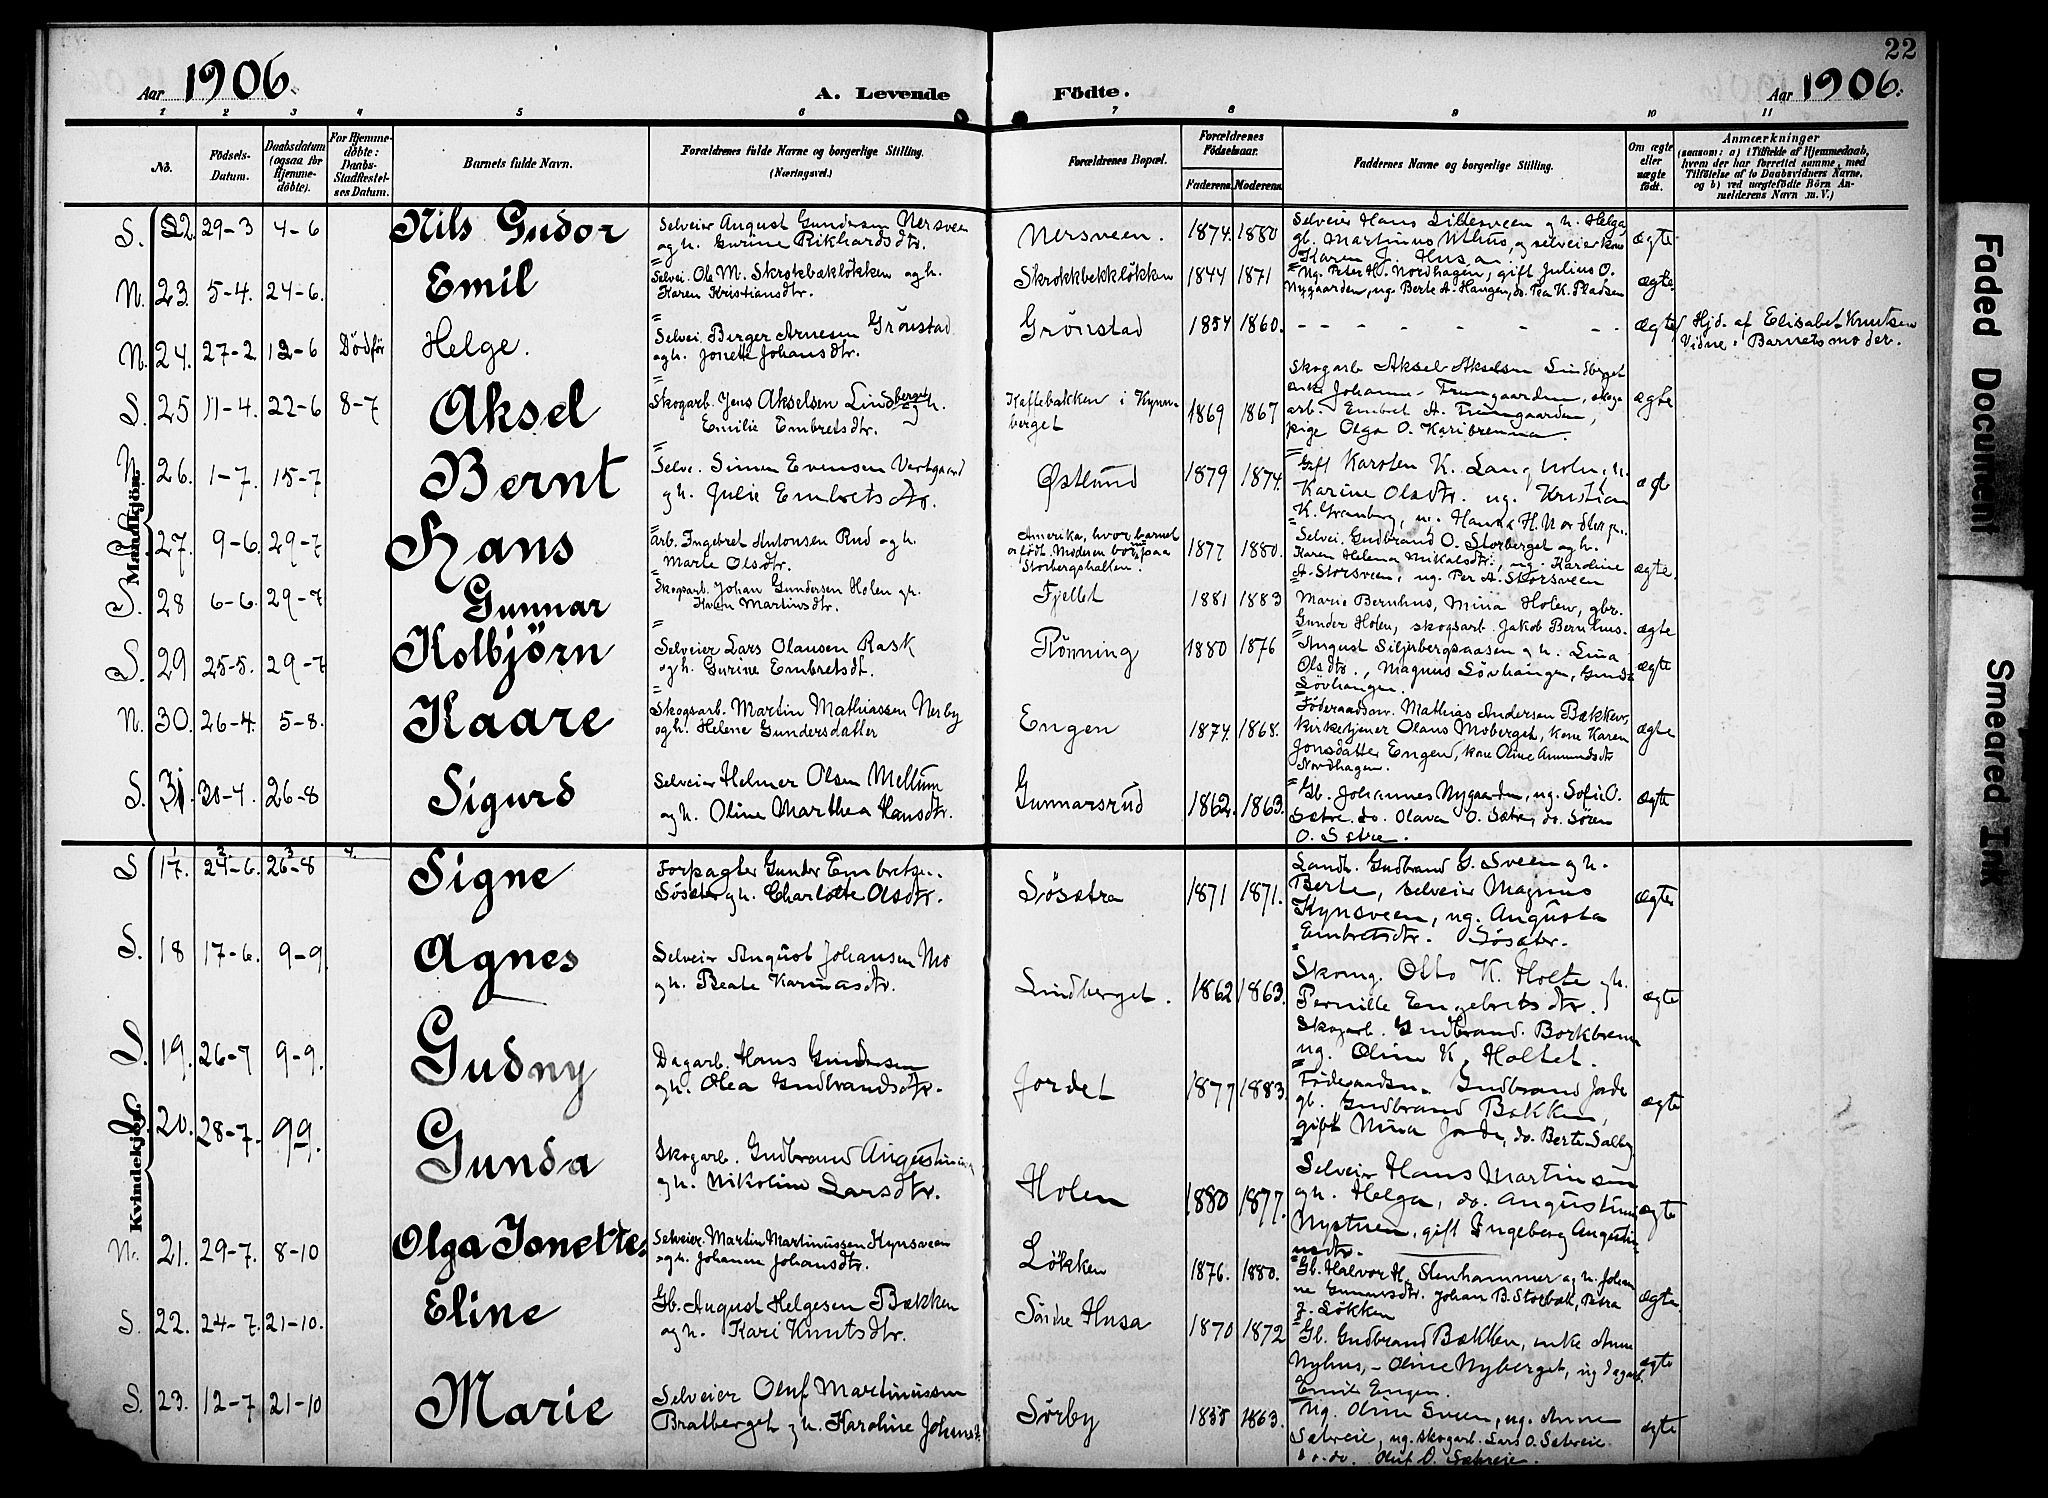 22
Aar 1906. A. Levende Fødte. Aar 1906.
1 2 3 4 5 6 7 8 9 10 11
No.
Fødsels-Datum.
Daabsdatum (ogsaa for Hjemme-døbte).
For Hjemme-døbte: Daabs-Stadfæstel-ses Datum.
Barnets fulde Navn.
Forældrenes fulde Navne og borgerlige Stilling. (Næringsvei.)
Forældrenes Bopæl.
Forældrenes Fødselsaar.
Faderens. Moderens.
Faddernes Navne og borgerlige Stilling.
Om ægte eller uægte født.
Anmærkninger
(saasom: a) i Tilfælde af Hjemmedaab, hvem der har forrettet samme, med Tilføielse af to Daabsvidners Navne, og b) ved uægtefødte Børn An-melderens Navn m. V.)
Mandkjøn.
S. 22. 29-3 4-6 Nils Gudor
Selveier August Gundersen Nersveen
og h. Gurine Rikhardsdtr.
Nersveen. 1874. 1880
Selveier Hans Lillesveen og h. Helga,
gb. Martinus Nthus, og selveierkone
Karen J. Husa
ægte
N. 23. 5-4. 24-6. Emil
Selvei. Ole M. Skrokbækløkken og h.
Karen Kristiansdtr.
Skrokkbekkløkken 1844 1871
Ug. Peter H. Nordhagen, gift Julius O.
Nygaarden, ug. Berte A. Haugen, do. Pea K. Pladsen
ægte.
N. 24. 27-2 12-6 Dødfør Helge.
Selvei. Berger Arnesen Grønstad
og h. Jonette Johansdtr.
Grønstad 1854 1860. - - - - - - - ægte
Hjd. af Elisabet Knutsen
Vidne: Barnets moder.
S. 25 11-4. 22-6 8-7 Aksel
Skogarb. Jens Akselsen Lindberget og h.
Emilie Embretsdtr.
Kaffebakken i Kynn-
berget 1869 1867
Skogarb Aksel Akselsen Lindberget
enke Johanne Frungaarden, skog
arb. Embret A. Frungaarden,
pige Olga O. Karibrenna.
ægte
N. 26. 1-7. 15-7 Bernt
Selve. Simen Evensen Vestgaard
og h. Julie Embretsdtr.
Østlund 1879 1874.
Gift Karsten K. Langholm, h.
Karine Olsdtr. ug. Kristian
K. Granberg, u. Hanna H. Nordhagen.
ægte
S. 27. 9-6. 29-7 Hans
Arb. Ingebret Antonsen Rud og h.
Marte Olsdtr.
Amerika, hvor barnet
er født. Moderen bor nu paa
Storbergshalten. 1877 1880.
Selvei. Gudbrand O. Storberget og h.
Karen Helena Mikalsdtr., ug. Karoline
A. Storsveen, ug. Per A. Storsveen
ægte.
S. 28 6-6. 29-7 Gunnar
Skogsarb. Johan Gundersen Holen og h.
Karen Martinsdtr.
Fjellet 1881 1883
Marie Bernhus, Mina Holen, gbr.
Gunder Holen, skogsarb. Jakob Bernhus.
ægte
S. 29 25-5. 29-7 Kolbjörn
Selveier Lars Olausen Rask
og h. Gurine Embretsdt.
Rønning 1880 1876
August Siljebergsaasen og h. Lina
Olsdtr., Magnus Løvhaugen, Gunda
Løvhaugen.
ægte
N. 30. 26-4. 5-8. Kaare
Skogsarb. Martin Mathiassen Nerby
og h. Helene Gundersdatter
Engen 1874. 1868.
Føderaadsm. Mathias Andersen Bækken,
kirketjener Olaus Moberget, kone Karen
Jonsdatter Engen, kone Oline Amundsdtr
Nordhagen.
ægte
S. 31. 30-4. 26-8 Sigurd
Selveier Helmer Olsen Mellum
og h. Oline Marthea Hansdtr.
Gunnarsrud 1862. 1863.
Gb. Johannes Nygaarden, ug. Sofie O.
Sætre. do. Olava O. Sætre, do. Søren
O. Sætre.
ægte
Kvindekjøn.
1 2 3 4.
S 17. 24-6. 26-8 Signe
Forpagter Gunder Embretsen.
Søsæter og h. Charlotte Olsdtr.
Søsætra 1871 1871.
Landh. Gudbrand G. Sveen og h.
Berte, selveier Magnus
Kynsveen, ug. Augusta
Embretsdtr. Søsæter.
ægte
S. 18 17-6. 9-9. Agnes
Selveier August Johansen Mo
og h. Beate Karinasdtr.
Lindberget. 1862 1863.
Skomg. Otto K. Holte og h.
Pernille Engebretsdtr.
Skogarb. Gudbrand. Borkbrenn
ug. Oline K. Holtet.
ægte
S. 19. 26-7 9-9. Gudny
Dagarb. Hans Gundersen
og h. Olea Gudbrandsdtr.
Jordet 1877 1883.
Føderaadsm. Gudbrand Jorde
gb. Gudbrand Bakken,
gift Mina Jorde, do. Berte Salberg
ægte
S. 20. 28-7. 9-9. Gunda
Skogarb. Gudbrand Augustinusen
og h. Nikoline Larsdtr.
Holen 1880 1877.
Selveier Hans Martinsen
og h. Helga, do. Augustinus
Nystuen, gift Ingeborg Augusti-
nusdtr.
ægte
N. 21. 29-7. 8-10 Olga Jonette.
Selveier. Martin Martinussen Kynsveen
og h. Johanne Johansdtr.
Løkken 1876. 1880.
Gb. Halvor H. Stenhammer og h. Johan
ne Gunnersdtr. Johan B. Storbæk, Petra
J. Løkken
ægte.
S. 22. 24-7. 21-10. Eline
Gb. August Helgesen Bækken
og h. Kari Knutsdtr.
Søndre Husa 1870 1872
Gb. Gudbrand Bækken, enke Anne
Nyhus, - Oline Nyberget, ug dagarb.
Emil Engen.
ægte
S. 23. 12-7. 21-10 Marie
Selveier Oluf Martinussen
Bratberget og h. Karoline Johansdt
Sørby 1855 1863.
Ug. Oline Sveen, ug. Anne
Sætreie, ug. skogarb. Lars O. Sætreie
do. do. Oluf O. Sætreie.
ægte
Faded Document
Smeared Ink